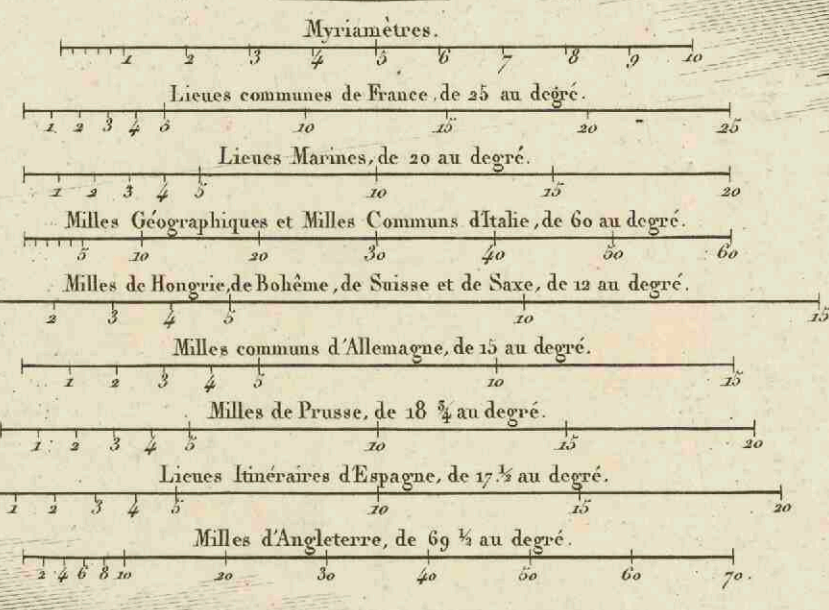 Myriamètres.
1 2 3 4 5 6 7 8 9 10
Lieues communes de France, de 25 au degré.
1 2 3 4 5 10 15 20 25
Lieues Marines, de 20 au degré.
1 2 3 4 5 10 15 20
Milles Géographiques et Milles Communs d'Italie, de 60 au degré.
5 10 20 30 40 50 60
Milles de Hongrie, de Bohême, de Suisse et de Saxe, de 12 au degré.
2 3 4 5 10 15
Milles communs d'Allemagne, de 15 au degré.
1 2 3 4 5 10 15
Milles de Prusse, de 18 ¾ au degré.
1 2 3 4 5 10 15 20
Lieues Itinéraires d'Espagne, de 17.½ au degré.
1 2 3 4 5 10 15 20
Milles d'Angleterre, de 69 ½ au degré.
2 4 6 8 10 20 30 40 50 60 70.